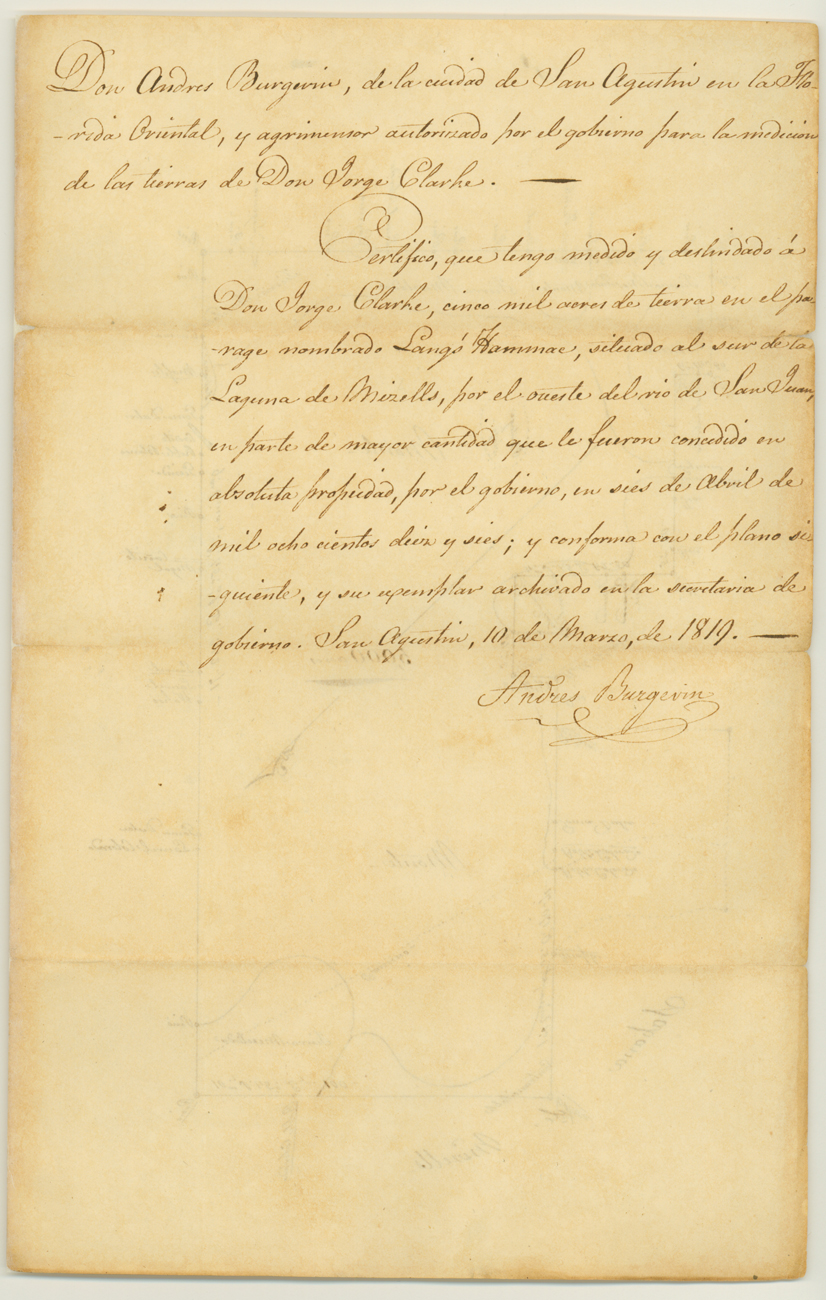 Don Andres Burgevin, de la ciudad de San Agustin en la Flo-
-rida Oriental, y agrimensor autorizado por el gobierno para la medicion
de las tierras de Don Jorge Clarke. —
Certifico, que tengo medido y deslindado á
Don Jorge Clarke, cinco mil acres de tierra en el pa-
-rage nombrado Lang's Hammac, situado al sur de la
Laguna de Mizells, por el oueste del rio de San Juan,
en parte de mayor cantidad que le fueron concedido en
absoluta propiedad, por el gobierno, en sies de Abril de
mil ocho cientos diez y sies; y conforma con el plano si-
-guiente, y su exemplar archivado en la secretaria de
gobierno. San Agustin, 10 de Marzo, de 1819. —
Andres Burgevin